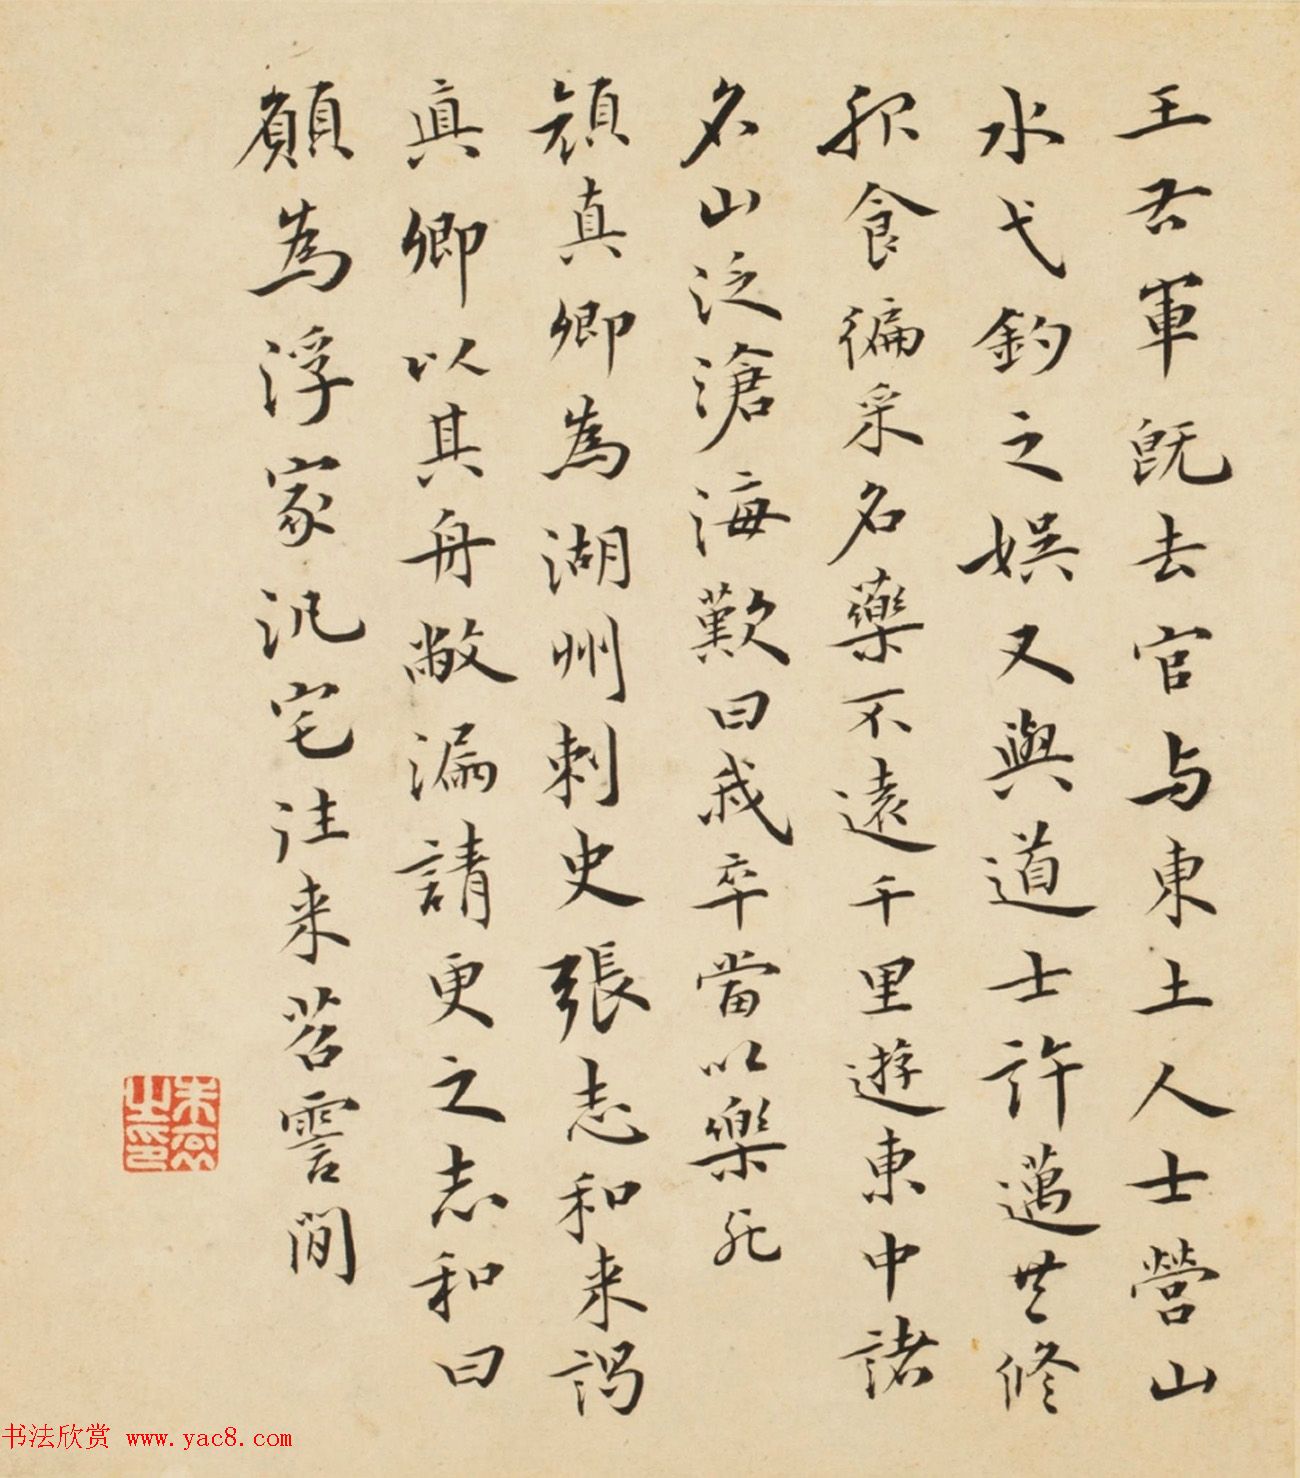 王右軍既去官与東土人士營山
水弋釣之娛又與道士許邁共修
服食徧采名藥不遠千里遊東中諸
名山泛滄海歎曰我卒當以樂死
顔真卿為湖州刺史張志和来謁
真卿以其舟敝漏請更之志和曰
願為浮家汎宅往来苕霅間
書法欣赏 www.yac8.com